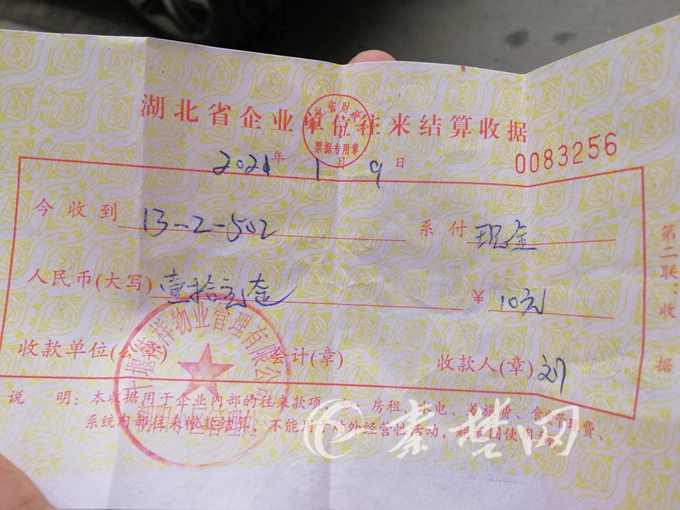 湖北省企业单位往来结算收据
票据专用章
2021年 1月 9日
0083256
今收到 13-2-502 系付 现金
人民币(大写) 壹拾元整 ¥ 10元
收款单位(公章) 会计(章) 收款人(章) 刘
物业管理有限公司
说 明:本收据用于企业内部的往来款项,如:房租、水电、差旅费、食
系统内部往来收款结算,不能用于对外经营性活动,
第二联:收据
秦楚网